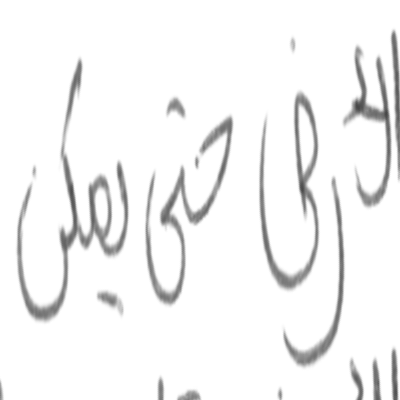 الأرض حتى يمكن